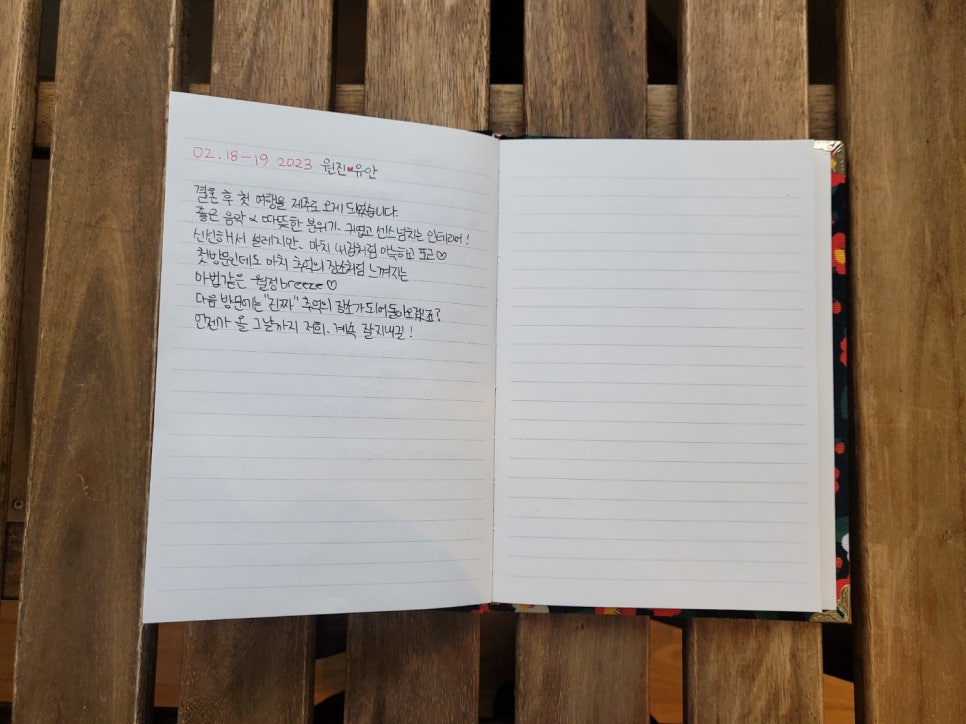 02. 18-19 2023 원진♥유안
결혼 후 첫 여행을 제주로 오게 되었습니다.
좋은 음악 & 따뜻한 분위기. 귀엽고 센스넘치는 인테리어!
신선해서 설레지만, 마치 내집처럼 아늑하고 포근♡
첫방문인데도 마치 추억의 장소처럼 느껴지는
마법같은 월정breeze♡
다음 방문에는 "진짜" 추억의 장소가 되어 돌아오겠죠?
언젠가 올 그날까지 저희. 계속 잘지내길!